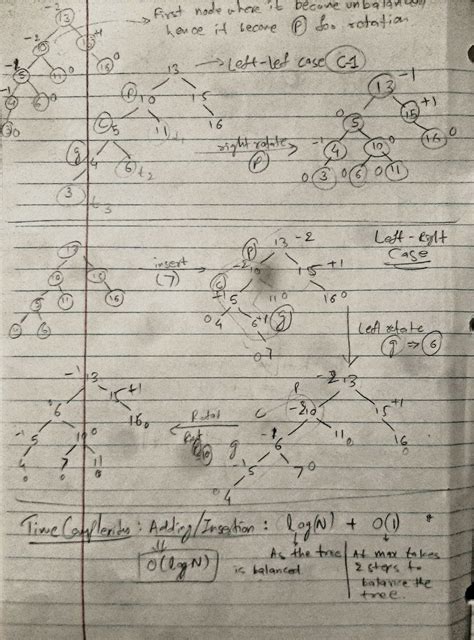 First node where it become unbalanced
hence it become P for rotation
-2
13
-2
10
+1
15
-1
5
11
0
16
0
4
6
0
3
0
13
→ Left-left case C-1
P
10
15
C
5
11
t1
16
g
4
6
t2
3
t3
right rotate
P
13
-1
0
5
+1
15
-1
4
10
0
16
0
0
3
0
6
0
11
Left-Right
Case
13
10
15
5
11
16
4
6
insert
(7)
P
13
-2
-2
10
15
+1
C
+1
5
11
0
16
0
0
4
6
+1
g
0
7
Left rotate
g ⇒ 6
-1
13
6
15
+1
-1
5
10
0
16
0
4
0
7
0
11
0
-2
13
P
-2
10
15
+1
C
-1
6
11
0
16
0
g
-1
5
7
0
4
0
Right
10
Time Complexity: Adding/Insertion: log(N) + O(1)
O(log N)
As the tree
is balanced
At max takes
2 steps to
balance the
tree.